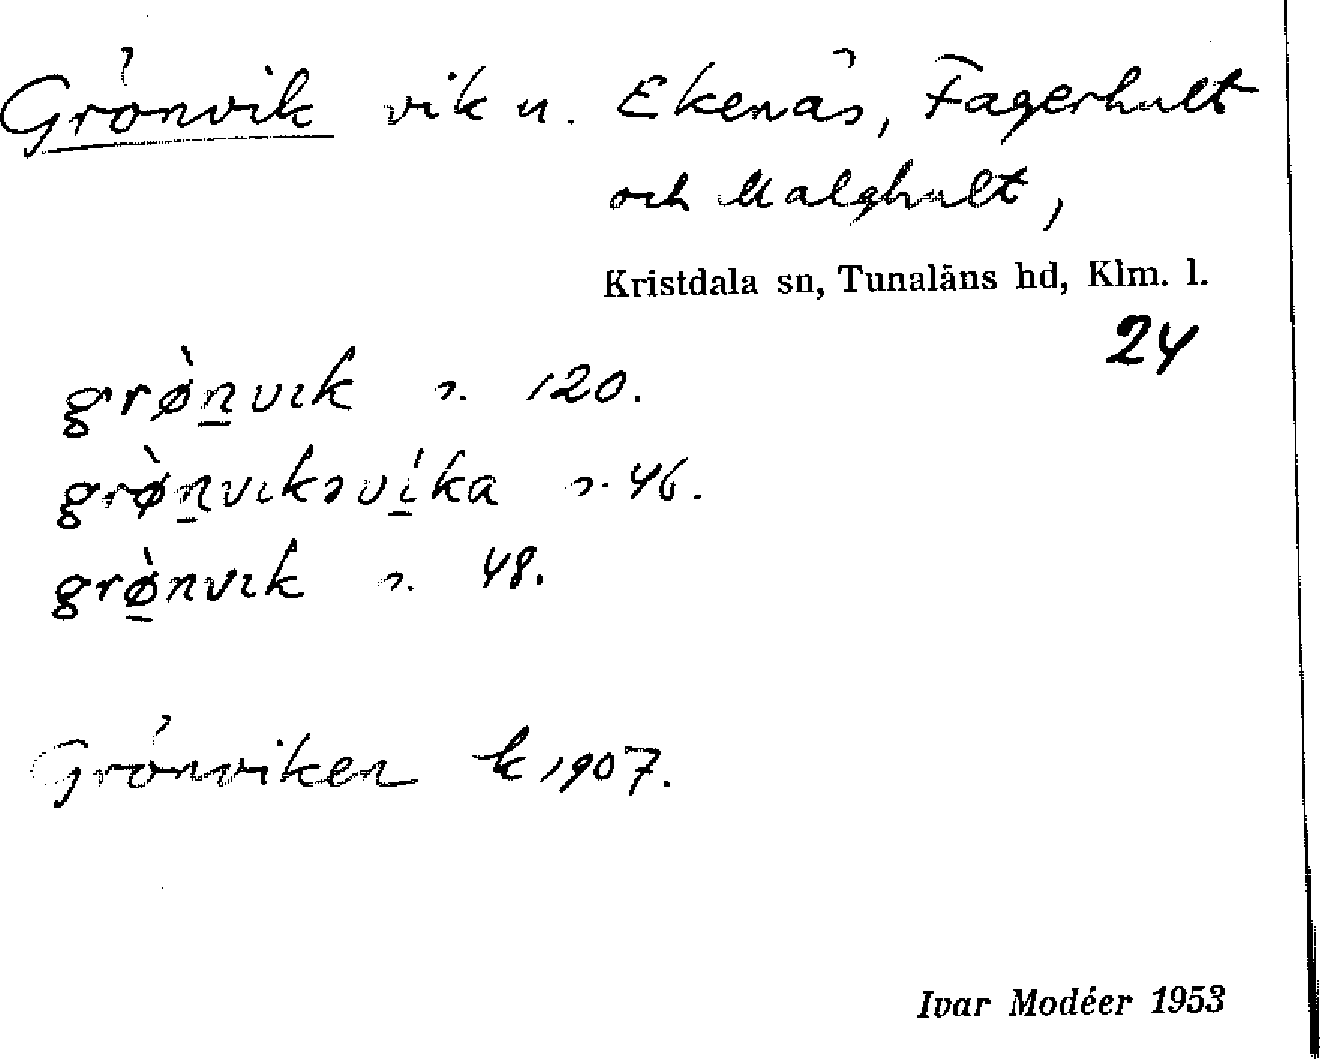 Grönvik vik u. Ekenäs, Fagerhult
och Malghult,
Kristdala sn, Tunaläns hd, Klm. l.
24
grø̀n̲vιk s. 120.
grø̀n̲vιksví̲ka s. 46.
grø̲̀nvιk s. 48.
Grönviken k 1907.
Ivar Modéer 1953